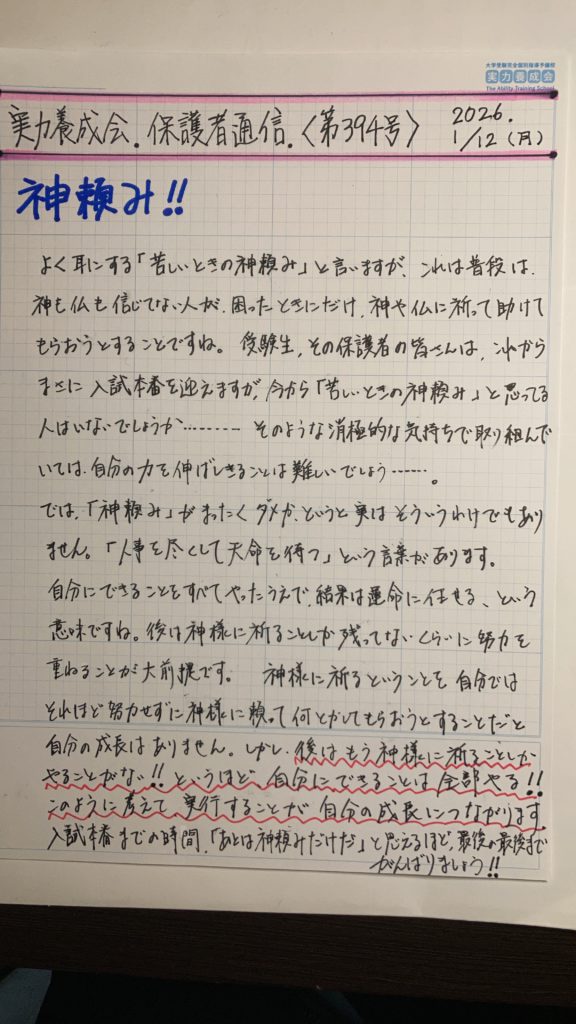 大学受験完全個別指導予備校
実力養成会
The Ability Training School
実力養成会.保護者通信.〈第394号〉
2026.
1/12(月)
神頼み!!
よく耳にする「苦しいときの神頼み」と言いますが、これは普段は、
神も仏も信じてない人が、困ったときにだけ、神や仏に祈って助けて
もらおうとすることですね。受験生、その保護者の皆さんは、これから
まさに入試本番を迎えますが、今から「苦しいときの神頼み」と思ってる
人はいないでしょうか……… そのような消極的な気持ちで取り組んで
いては、自分の力を伸ばしきることは難しいでしょう……。
では、「神頼み」がまったくダメか、というと実はそういうわけでもあり
ません。「人事を尽くして天命を待つ」という言葉があります。
自分にできることをすべてやったうえで、結果は運命に任せる、という
意味ですね。後は神様に祈ることしか残ってないくらいに努力を
重ねることが大前提です。 神様に祈るということを自分では
それほど努力せずに神様に頼って何とかしてもらおうとすることだと
自分の成長はありません。しかし、後はもう神様に祈ることしか
やることがない!!というほど、自分にできることは全部やる!!
このように考えて、実行することが自分の成長につながります。
入試本番までの時間、「あとは神頼みだけだ」と思えるほど、最後の最後まで
がんばりましょう!!